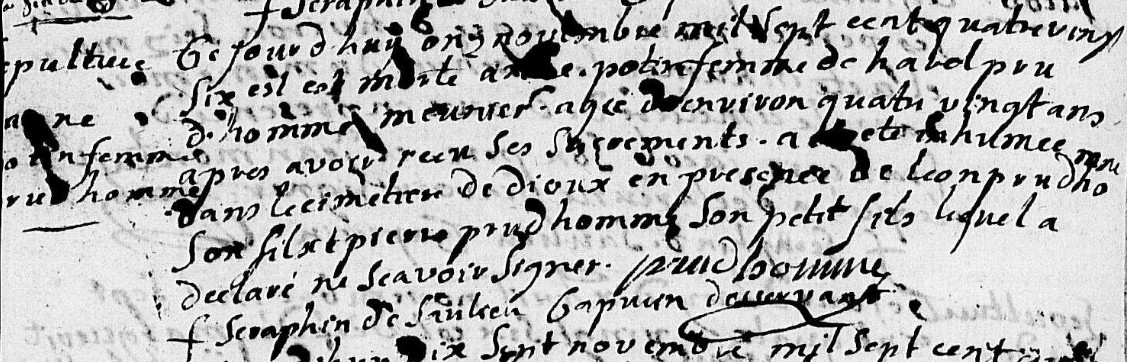 f Seraphin
Ce jourdhuy onz novembre mil Sept cent quatrevingt
Six est est morte anne potin femme de harol pru
dhomme meunier agée denviron quatre vingt ans
apres avoir recu Ses Sacrements a eté inhumee
dans le cimetier de dioux en presence de leon prudho mme
Son fils et pierre prudhomme Son petit fils lequel a
declaré ne Scavoir Signer. prudhomme
f Seraphin de Saulieu Capucin desservant
dix Sept novembre mil Sept cent
sepulture
anne
potin femme
prudhomme